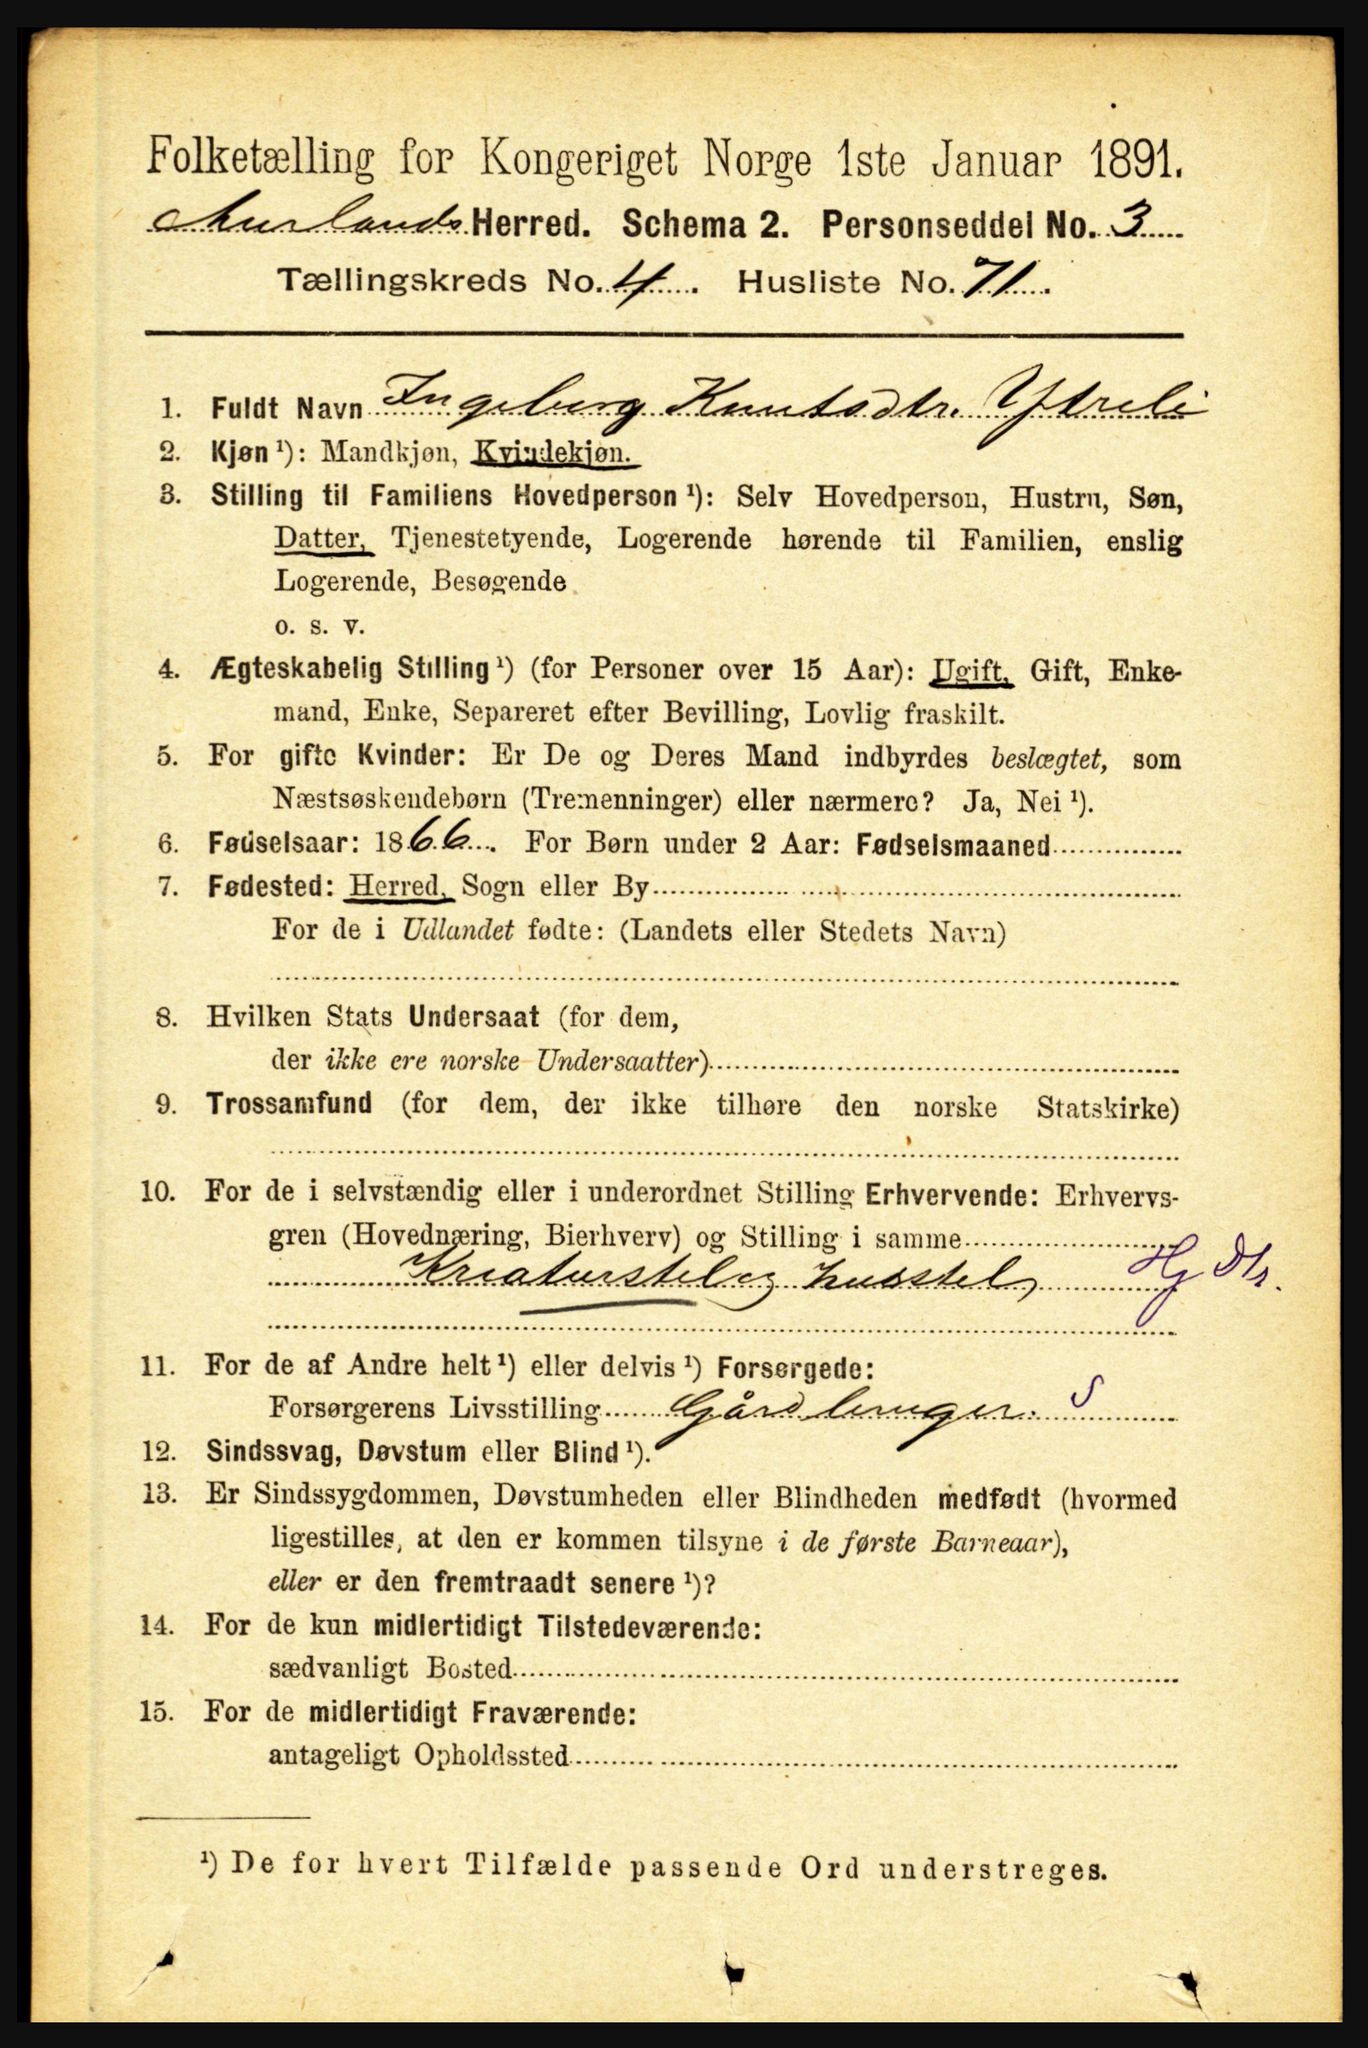 Folketælling for Kongeriget Norge 1ste Januar 1891.
Aurlands Herred. Schema 2. Personseddel No. 3
Tællingskreds No. 4. Husliste No. 71.
1. Fuldt Navn Ingeberg Knutsdtr. Ytreli
2. Kjøn ¹): Mandkjøn, Kvindekjøn.
3. Stilling til Familiens Hovedperson ¹): Selv Hovedperson, Hustru, Søn,
Datter, Tjenestetyende, Logerende hørende til Familien, enslig
Logerende, Besøgende
o. s. v.
4. Ægteskabelig Stilling ¹) (for Personer over 15 Aar): Ugift, Gift, Enke-
mand, Enke, Separeret efter Bevilling, Lovlig fraskilt.
5. For gifte Kvinder: Er De og Deres Mand indbyrdes beslægtet, som
Næstsøskendebørn (Tremenninger) eller nærmere? Ja, Nei ¹).
6. Fødselsaar: 1866. For Børn under 2 Aar: Fødselsmaaned
7. Fødested: Herred, Sogn eller By
For de i Udlandet fødte: (Landets eller Stedets Navn)
8. Hvilken Stats Undersaat (for dem,
der ikke ere norske Undersaatter)
9. Trossamfund (for dem, der ikke tilhøre den norske Statskirke)
10. For de i selvstændig eller i underordnet Stilling Erhvervende: Erhvervs-
gren (Hovednæring, Bierhverv) og Stilling i samme
Kreaturstel og husstel Hg Dtr.
11. For de af Andre helt ¹) eller delvis ¹) Forsørgede:
Forsørgerens Livsstilling Gårdbruger. S
12. Sindssvag, Døvstum eller Blind ¹).
13. Er Sindssygdommen, Døvstumheden eller Blindheden medfødt (hvormed
ligestilles, at den er kommen tilsyne i de første Barneaar),
eller er den fremtraadt senere ¹)?
14. For de kun midlertidigt Tilstedeværende:
sædvanligt Bosted
15. For de midlertidigt Fraværende:
antageligt Opholdssted
¹) De for hvert Tilfælde passende Ord understreges.